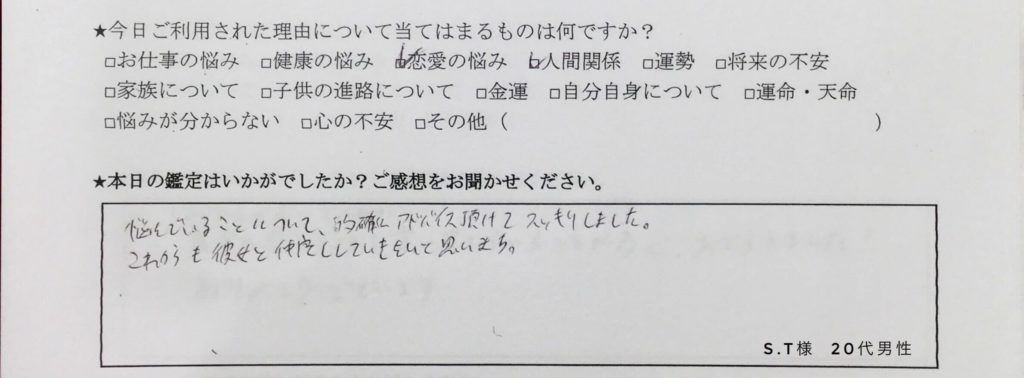 ★今日ご利用された理由について当てはまるものは何ですか？
□お仕事の悩み □健康の悩み □恋愛の悩み □人間関係 □運勢 □将来の不安
□家族について □子供の進路について □金運 □自分自身について □運命・天命
□悩みが分からない □心の不安 □その他（ ）
★本日の鑑定はいかがでしたか？ご感想をお聞かせください。
悩んでいることについて、的確にアドバイス頂けてスッキリしました。
これからも彼女と仲良くしていきたいと思います。
S.T様 20代男性